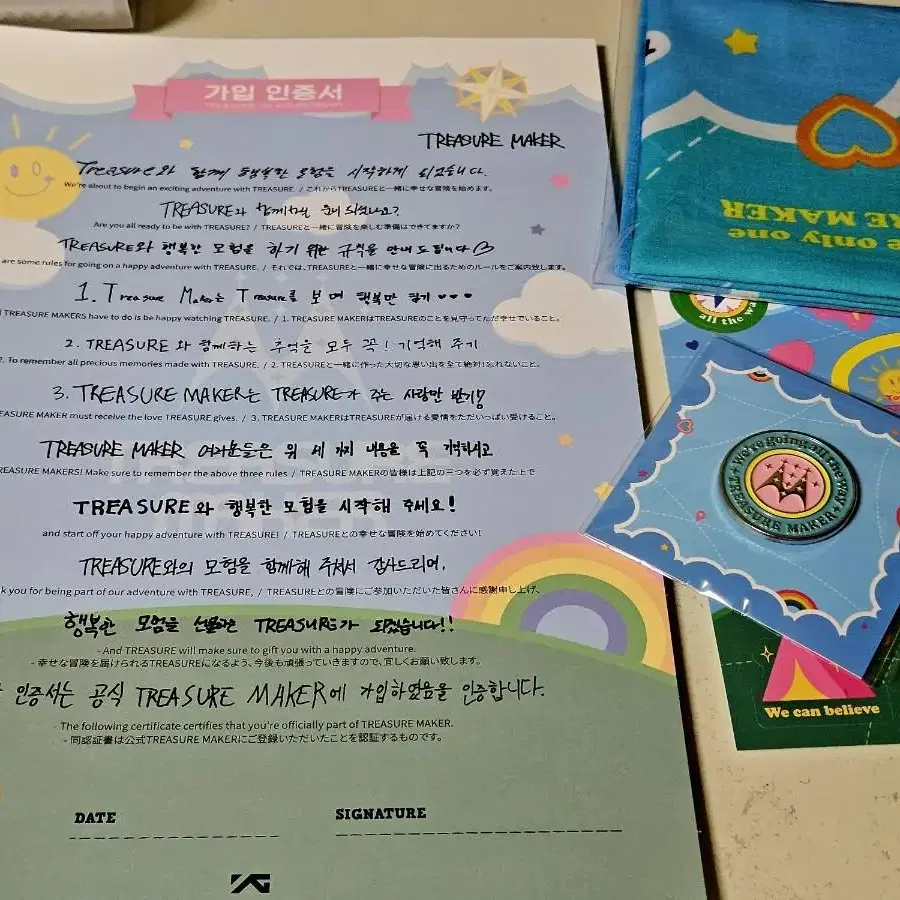 가입 인증서
TREASURE MAKER
Treasure와 함께 행복한 모험을 시작하게 되었습니다.
We're about to begin an exciting adventure with TREASURE. / これからTREASUREと一緒に幸せな冒険を始めます。
TREASURE와 함께할 준비 되셨나요?
Are you all ready to be with TREASURE? / TREASUREと一緒に冒険を楽しむ準備はできてますか?
TREASURE와 행복한 모험을 하기 위한 규칙을 안내드립니다♡
are some rules for going on a happy adventure with TREASURE. / それでは、TREASUREと一緒に幸せな冒険に出るためのルールをご案内致します。
1. Treasure Maker는 Treasure를 보며 행복만 하기 ♥♥♥
TREASURE MAKERS have to do is be happy watching TREASURE. / 1. TREASURE MAKERはTREASUREのことを見守ってただ幸せでいること。
2. TREASURE와 함께하는 추억을 모두 꼭! 기억해 주기
2. To remember all precious memories made with TREASURE. / 2. TREASUREと一緒に作った大切な思い出を全て絶対!忘れないこと。
3. TREASURE MAKER는 TREASURE가 주는 사랑만 받기!!
TREASURE MAKER must receive the love TREASURE gives. / 3. TREASURE MAKERはTREASUREが届ける愛情をただいっぱい受けること。
TREASURE MAKER 여러분들은 위 세 가지 내용을 꼭 기억하고
TREASURE MAKERS! Make sure to remember the above three rules / TREASURE MAKERの皆様は上記の三つを必ず覚えた上で
TREASURE와 행복한 모험을 시작해 주세요!
and start off your happy adventure with TREASURE! / TREASUREとの幸せな冒険を始めてください!
TREASURE와의 모험을 함께해 주셔서 감사드리며,
you for being part of our adventure with TREASURE, / TREASUREとの冒険にご参加いただいた皆さんに感謝申し上げ、
행복한 모험을 선물하는 TREASURE가 되겠습니다!!
- And TREASURE will make sure to gift you with a happy adventure.
- 幸せな冒険を届けられるTREASUREになるよう、今後も頑張っていきますので、宜しくお願い致します。
인증서는 공식 TREASURE MAKER에 가입하였음을 인증합니다.
- The following certificate certifies that you're officially part of TREASURE MAKER.
- 同認証書は公式TREASURE MAKERにご登録いただいたことを認証するものです。
DATE
SIGNATURE
YG
only one
RE MAKER
all the way
We're going all the way
TREASURE MAKER
We can believe